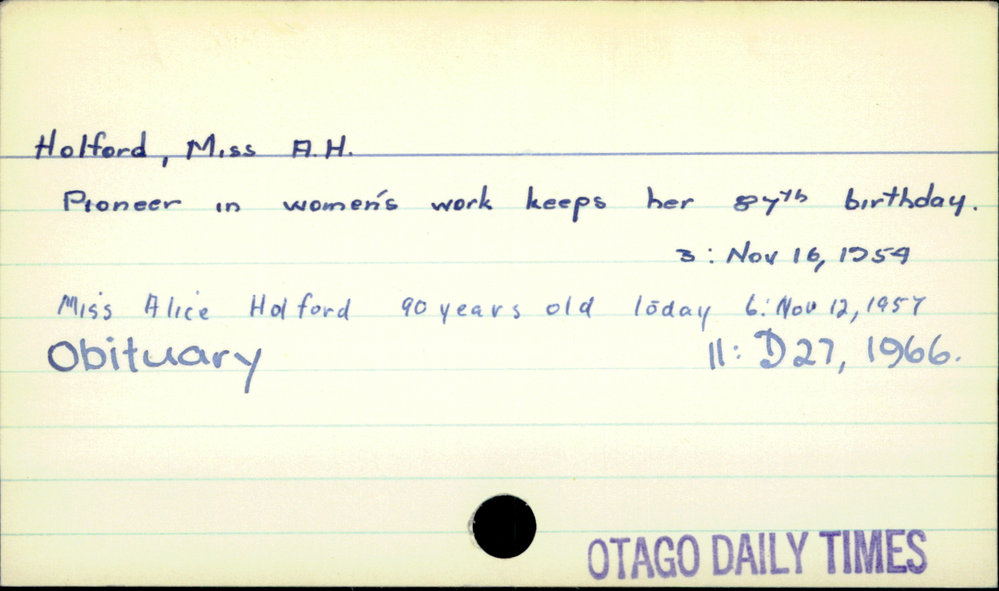 Holford, Miss A.H.
Pioneer in women's work keeps her 87th birthday.
3: Nov 16, 1954
Miss Alice Holford 90 years old today 6: Nov 12, 1957
Obituary 11: D27, 1966.
OTAGO DAILY TIMES